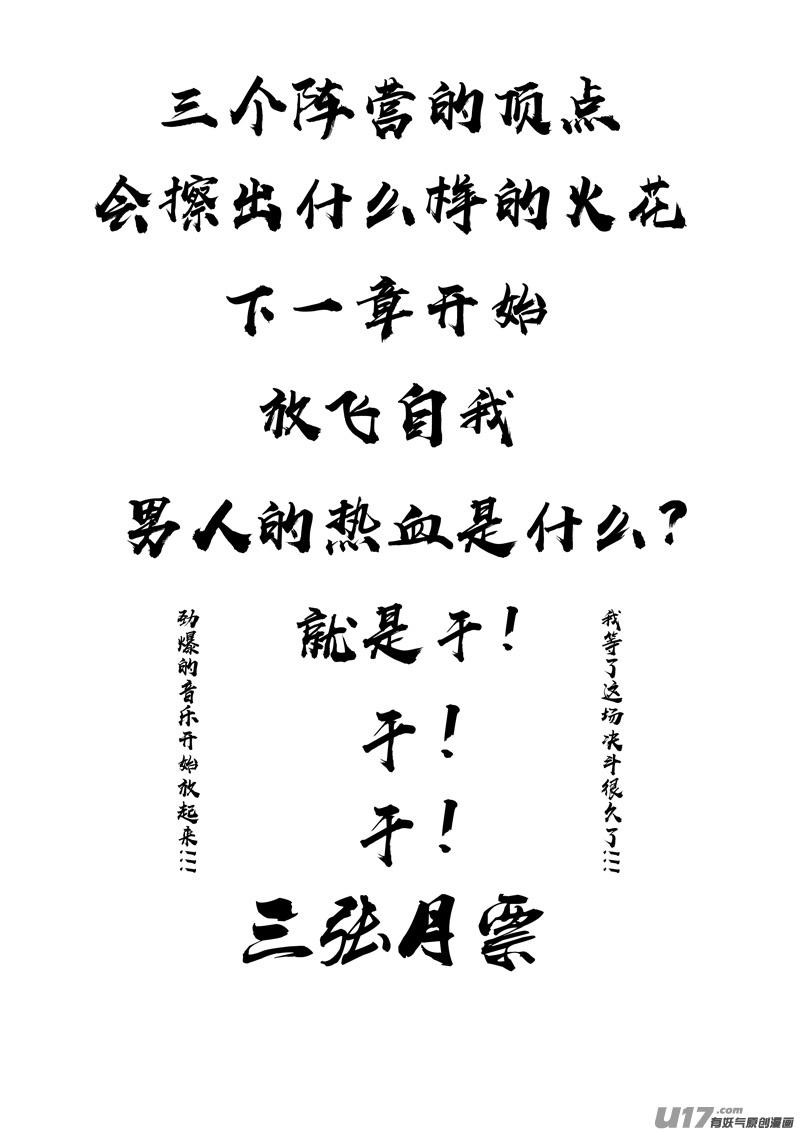 三个阵营的顶点
会擦出什么样的火花
下一章开始
放飞自我
男人的热血是什么?
就是干!
干!
干!
我等了这场决斗很久了!!!
劲爆的音乐开始放起来!!!
三张月票
U17.com
有妖气原创漫画